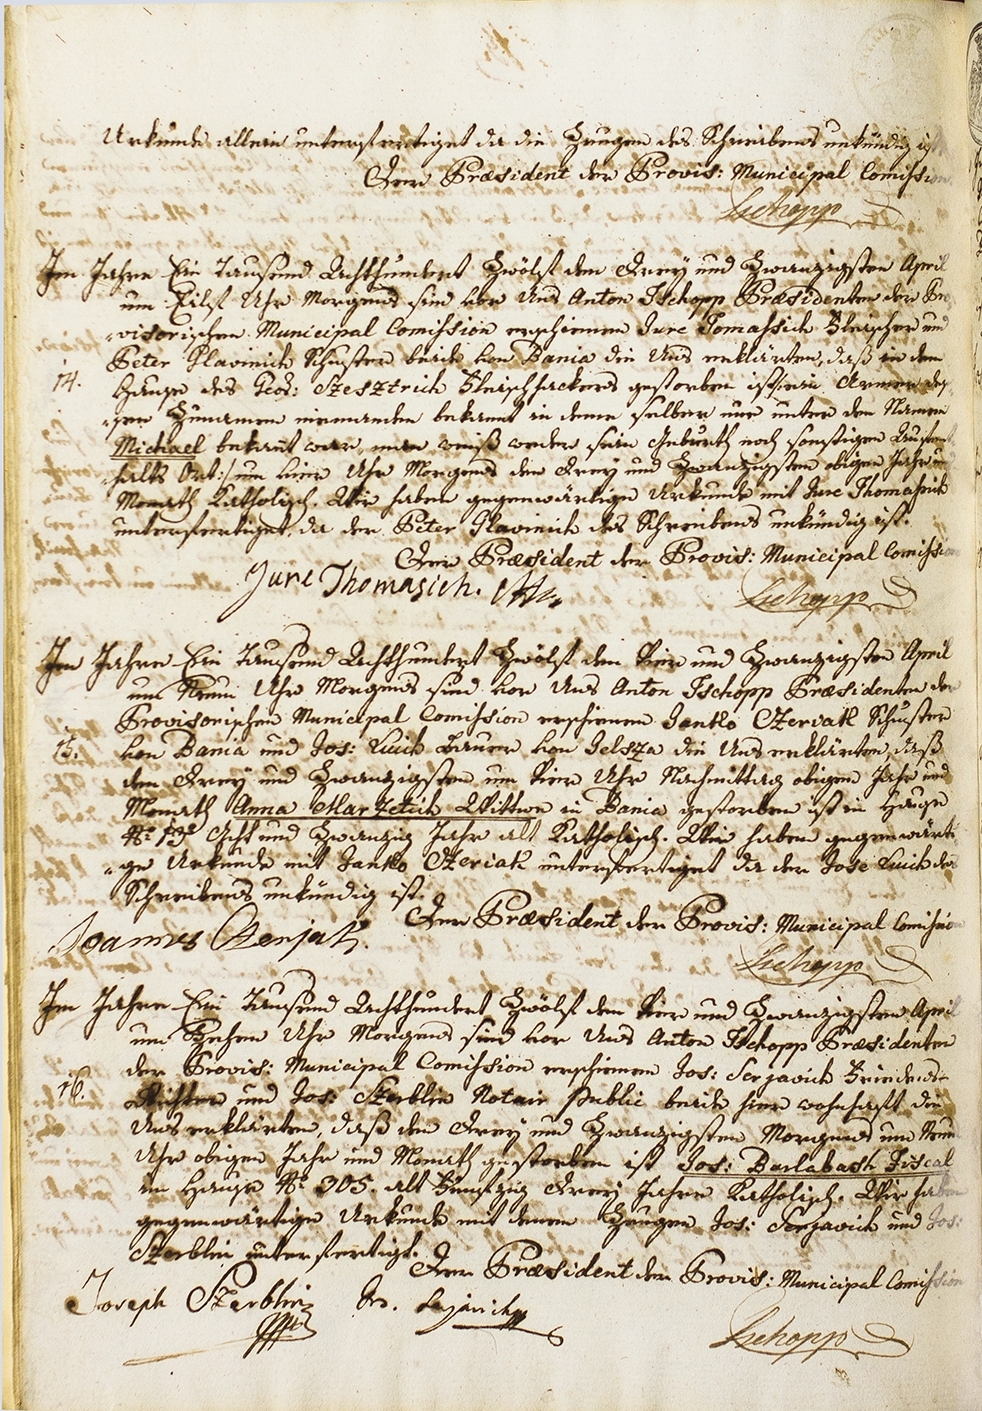 Urkunde allein unterfertiget da die Zeugen des Schreibens unkündig
Der Præsident der Provis: Municipal Comission
Tschopp
Im Jahre Ein Tausend Achthundert Zwölf den Drey und Zwanzigsten April
um Eilf Uhr Morgens sind vor Uns Anton Tschopp Præsidenten der Pro
visorischen Municipal Comission erschienen Jure Tomassich Fleischer und
Peter Glavinich Schuster beide von Bania die Uns erklärten, daß in dem
14.
Hause des Geor: Szesztrich Fleischhackers gestorben ist ein Armer des
sen Zunamen niemanden bekannt in deme selber nur unter den Namen
Michael bekannt war, man weiß weder sein Geburth noch sonstigen Aufent
halts Ort :/ um vier Uhr Morgens den Drey und Zwanzigsten obigen Jahr und
Monath Katholisch. Wir haben gegenwärtige Urkunde mit Jure Thomassich
unterfertiget, da der Peter Glavinich des Schreibens unkündig ist.
Der Præsident der Provis: Municipal Comission
Jure Thomasich.
Tschopp
Im Jahre Ein Tausend Achthundert Zwölf den Vier und Zwanzigsten April
um Neun Uhr Morgens sind vor Uns Anton Tschopp Præsidenten der
Provisorischen Municipal Comission erschienen Janko Czeriak Schuster
15.
von Bania und Jos: Luich Bauer von Jelsza die Uns erklärten, daß
den Drey und Zwanzigsten um Vier Uhr Nachmittag obigen Jahr und
Monath Anna Marzetich Wittwe in Bania gestorben ist in Hause
No 13 Acht und Zwanzig Jahr alt Katholisch. Wir haben gegenwärti
ge Urkunde mit Janko Czeriak unterfertiget da der Jose Luich des
Schreibens unkündig ist.
Der Præsident der Provis: Municipal Comission
Joannes Czerjak.
Tschopp
Im Jahre Ein Tausend Achthundert Zwölf den Vier und Zwanzigsten April
um Zehen Uhr Morgens sind vor Uns Anton Tschopp Præsidenten
der Provis: Municipal Comission erschienen Jos: Serjavich Friedens
16.
Richter und Jos: Szterblin Notair Public beide hier wohnhaft die
Uns erklärten, daß den Drey und Zwanzigsten Morgens um Neun
Uhr obigen Jahr und Monath gestorben ist Jos: Barlabash Fiscal
im Hause No 305. alt Funfzig Drey Jahre Katholisch. Wir haben
gegenwärtige Urkunde mit denen Zeugen Jos: Serjavich und Jos:
Szterblin unterfertigt.
Der Præsident der Provis: Municipal Comission
Joseph Szterblin
Tschopp